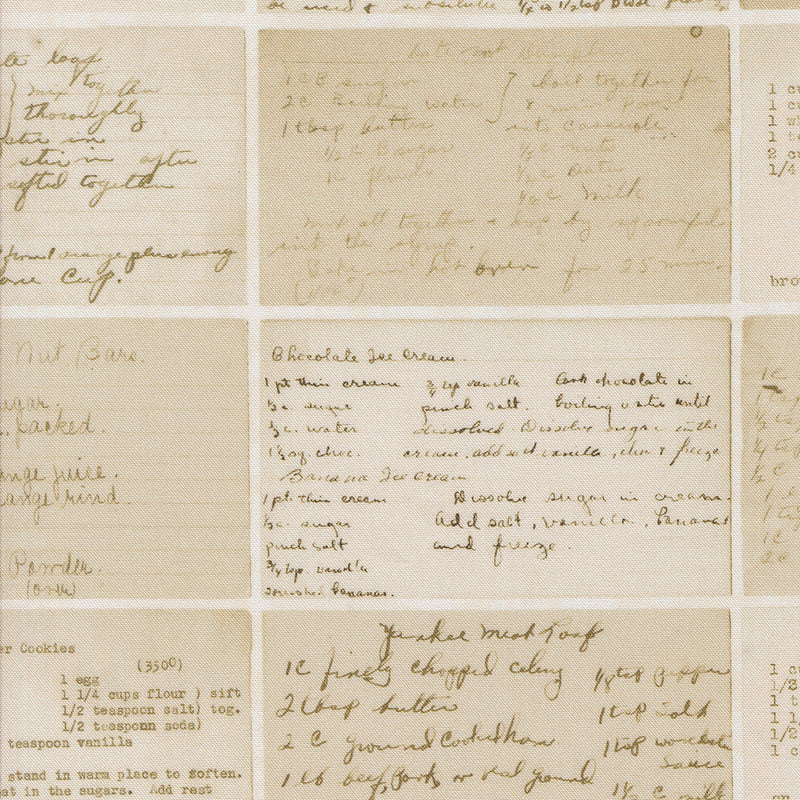 be used & substitute 1/4 to 1/2 tsp
loaf
mix together
thoroughly
stir in
stir in after
sifted together
from 1 orange plus enough
one cup.
1 C B sugar
2 C Boiling water
1 tbsp butter
} boil together for
into casserole
1/2 C B sugar
1 C flour
1/2 C nuts
1/2 C Dates
1/2 C Milk
Mix all together & drop by spoonful
into the syrup.
Bake in hot oven for 25 min.
1 cu
1 cu
1 wh
1 t
2 cu
1/4
bro
Nut Bars.
sugar.
packed.
orange juice.
orange rind
Powder.
(over)
Chocolate Ice Cream.
1 pt thin cream
3/4 tsp vanilla
Cook chocolate in
1/2 c. sugar
pinch salt.
boiling water until
1/2 c. water
dissolved. Dissolve sugar in the
1 1/2 sq. choc.
cream, add salt vanilla, choc & freeze
Banana Ice Cream
1 pt. thin cream
Dissolve sugar in cream.
1/2 c. sugar
Add salt, vanilla, bananas
pinch salt
and freeze.
3/4 tsp vanilla
bananas.
1 C
1 tsp
1/2 C
er Cookies
(350º)
1 egg
1 1/4 cups flour ) sift
1/2 teaspoon salt) tog.
1/2 teaspoon soda)
teaspoon vanilla
stand in warm place to soften.
at in the sugars. Add rest
Yankee Meat Loaf
1 C finely chopped celery
1/8 tsp pepper
2 tbsp butter
1 tsp salt
2 C ground cooked ham
1 tsp worcester
Sauce
1 lb beef, pork or veal ground
1 1/2 C milk
1 c
1/3
1 t
1 1/
1/2
1 c